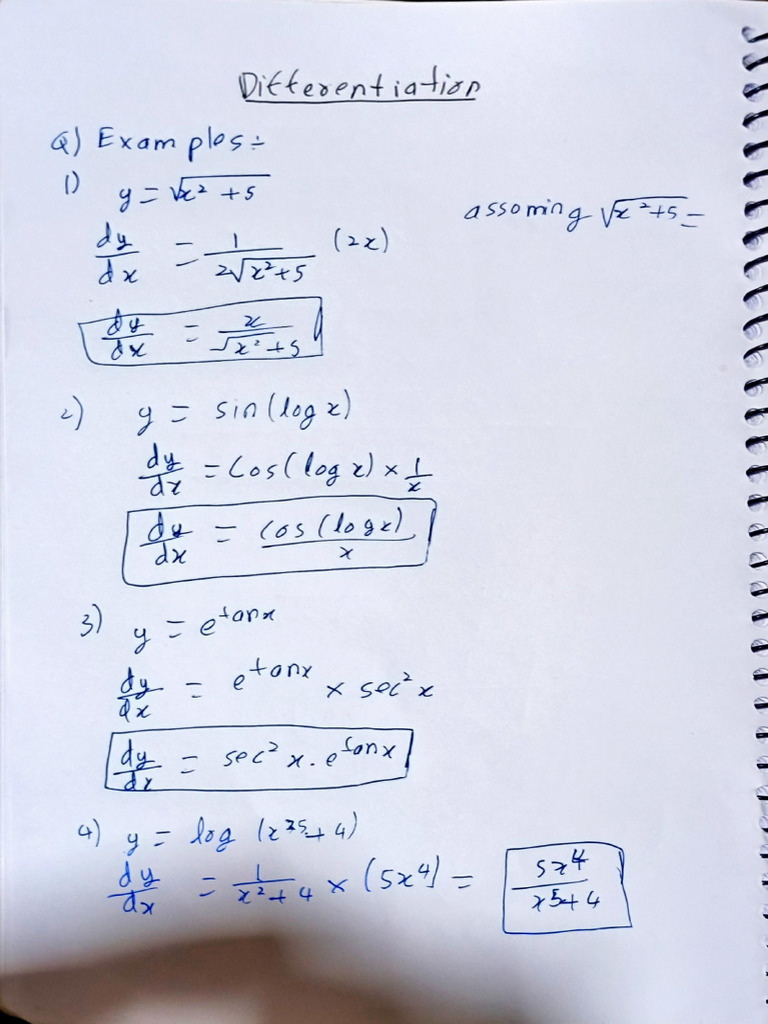 Differentiation
Q) Examples÷
1) y = √x² + 5
assoming √x²+5 =
dy/dx = 1/2√x²+5 (2x)
dy/dx = x/√x²+5
2) y = sin(log x)
dy/dx = Cos(log x) × 1/x
dy/dx = cos(logx)/x
3) y = e^tanx
dy/dx = e^tanx × sec² x
dy/dx = sec² x . e^tanx
4) y = log (x⁵ + 4)
dy/dx = 1/x²+4 × (5x⁴) = 5x⁴/x⁵+4